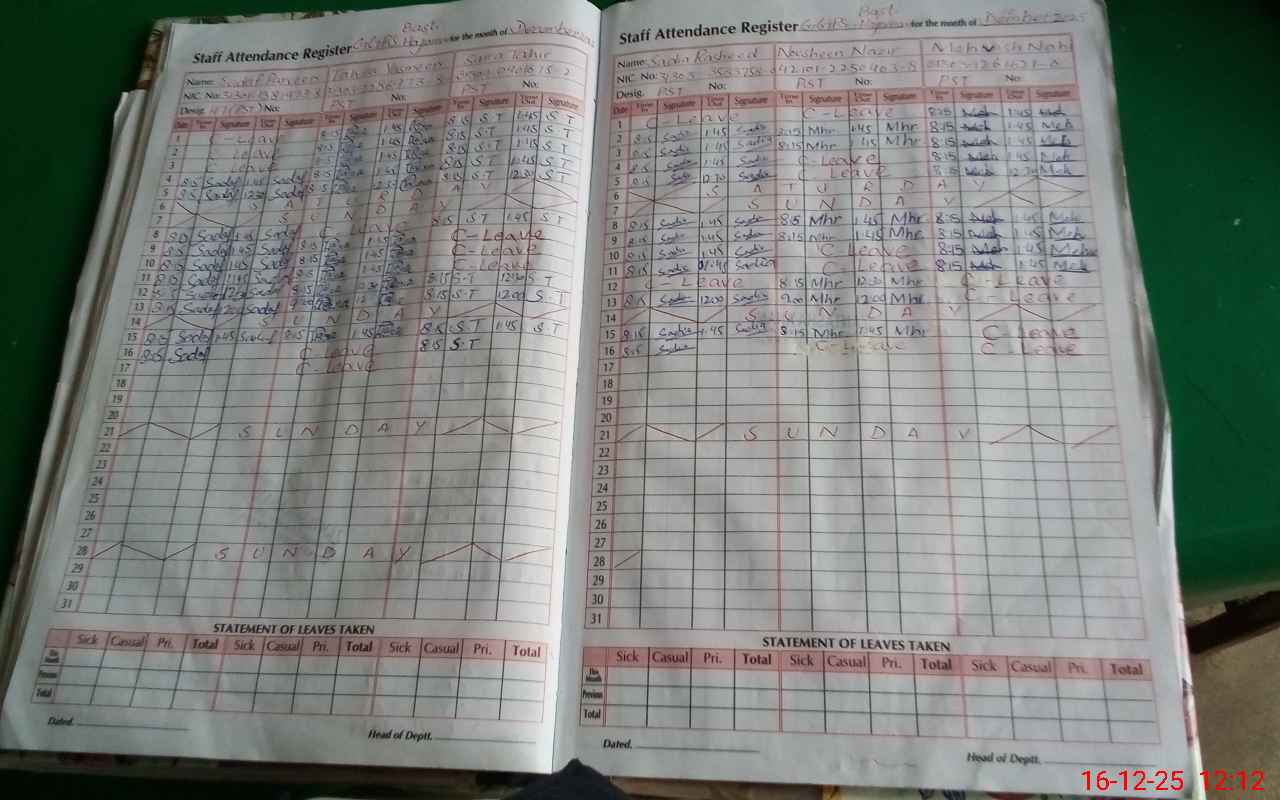 Bast.
Staff Attendance Register G.G.H.S. for the month of December 2025
Name: Sadaf Parveen Tahira Yasmeen Saira Tahir
NIC No:
Desig. PST No: PST No: PST No:
Date Time In Signature Time Out Signature Time In Signature Time Out Signature Time In Signature Time Out Signature
1 C - Leave 8:15 1:45 8:15 S.T 1:45 S.T
2 C - Leave 8:15 1:45 8:15 S.T 1:45 S.T
3 C - Leave 8:15 1:45 8:15 S.T 1:45 S.T
4 8:15 Sadaf 1:45 Sadaf 8:15 1:45 8:15 S.T 1:45 S.T
5 8:15 Sadaf 12:30 Sadaf 8:15 12:30 8:15 S.T 12:30 S.T
6 S A T U R D A Y
7 S U N D A Y
8 8:15 Sadaf 1:45 Sadaf C - Leave 8:15 S.T 1:45 S.T
9 8:15 Sadaf 1:45 Sadaf 8:15 1:45 C - Leave
10 8:15 Sadaf 1:45 Sadaf 8:15 1:45 C - Leave
11 8:15 Sadaf 1:45 Sadaf 8:15 1:45 C - Leave
12 8:15 Sadaf 12:30 Sadaf 8:15 12:30 8:15 S.T 12:30 S.T
13 8:15 Sadaf 12:00 Sadaf 12:00 8:15 S.T 12:00 S.T
14 S U N D A Y
15 8:15 Sadaf 1:45 Sadaf 8:15 1:45 8:15 S.T 1:45 S.T
16 8:15 Sadaf C - Leave 8:15 S.T
17 C - Leave
18
19
20
21 S U N D A Y
22
23
24
25
26
27
28 S U N D A Y
29
30
31
STATEMENT OF LEAVES TAKEN
Sick Casual Pri. Total Sick Casual Pri. Total Sick Casual Pri. Total
This Month
Previous
Total
Dated. Head of Deptt.
Bast.
Staff Attendance Register G.G.H.S. for the month of December 2025
Name: Sadia Rasheed Nousheen Nazir Mehvish Nabi
NIC No: 42101-2250403-8 No:
Desig. PST PST PST
Date Time In Signature Time Out Signature Time In Signature Time Out Signature Time In Signature Time Out Signature
1 C - Leave C - Leave 8:15 Meh 1:45 Meh
2 8:15 Sadia 1:45 Sadia 8:15 Mhr 1:45 Mhr 8:15 Meh 1:45 Meh
3 8:15 Sadia 1:45 Sadia 8:15 Mhr 1:45 Mhr 8:15 Meh 1:45 Meh
4 8:15 Sadia 1:45 Sadia C - Leave 8:15 Meh 1:45 Meh
5 8:15 Sadia 12:30 Sadia C Leave 8:15 Meh 12:30 Meh
6 S A T U R D A Y
7 S U N D A Y
8 8:15 Sadia 1:45 Sadia 8:15 Mhr 1:45 Mhr 8:15 Meh 1:45 Meh
9 8:15 Sadia 1:45 Sadia 8:15 Mhr 1:45 Mhr 8:15 Meh 1:45 Meh
10 8:15 Sadia 1:45 Sadia C Leave 8:15 Meh 1:45 Meh
11 8:15 Sadia 01:45 Sadia C - Leave 8:15 Meh 1:45 Meh
12 C - Leave 8:15 Mhr 12:30 Mhr C - Leave
13 8:15 Sadia 12:00 Sadia 9:00 Mhr 12:00 Mhr C - Leave
14 S U N D A Y
15 8:15 Sadia 1:45 Sadia 8:15 Mhr 1:45 Mhr C - Leave
16 8:15 Sadia C - Leave C - Leave
17
18
19
20
21 S U N D A Y
22
23
24
25
26
27
28
29
30
31
STATEMENT OF LEAVES TAKEN
Sick Casual Pri. Total Sick Casual Pri. Total Sick Casual Pri. Total
This Month
Previous
Total
Dated. Head of Deptt.
16-12-25 12:12